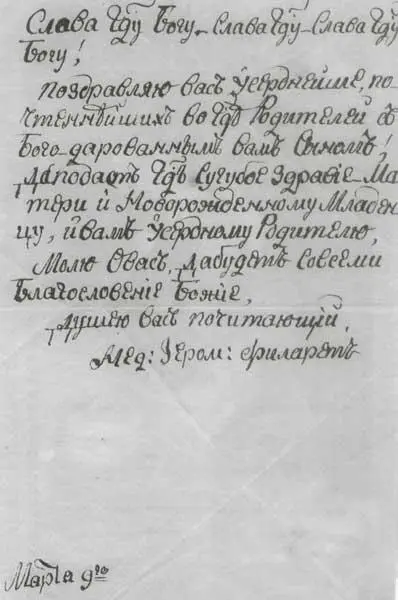 Слава Гду Богу. Слава Гду Слава Гду
Богу!
Поздравляю васъ Усерднейше, по-
чтеннѣйшихъ во Гдѣ Родителей съ
Бого-дарованнымъ вамъ Сыномъ!
Даподастъ Гдь Сугубое Здравіе Ма-
тери и Новорожденному Младен-
цу, и вамъ Усердному Родителю,
Молю Овасъ, дабудетъ Совсеми
Благословеніе Божіе,
душею васъ почитающій,
Мед: Іером: Филаретъ
Марта 9го